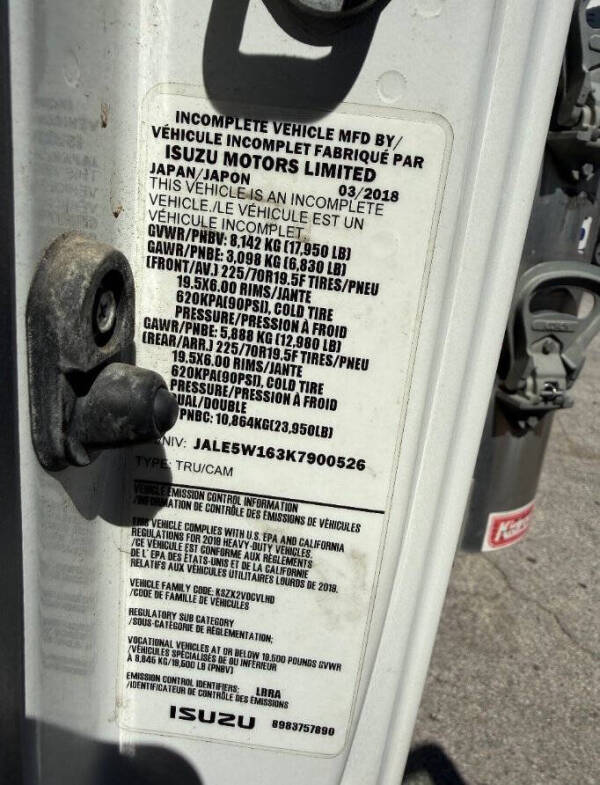 INCOMPLETE VEHICLE MFD BY/
VÉHICULE INCOMPLET FABRIQUÉ PAR
ISUZU MOTORS LIMITED
JAPAN/JAPON 03/2018
THIS VEHICLE IS AN INCOMPLETE
VEHICLE./LE VÉHICULE EST UN
VÉHICULE INCOMPLET.
GVWR/PNBV: 8,142 KG (17,950 LB)
GAWR/PNBE: 3,098 KG (6,830 LB)
(FRONT/AV.) 225/70R19.5F TIRES/PNEU
19.5X6.00 RIMS/JANTE
620KPA(90PSI), COLD TIRE
PRESSURE/PRESSION À FROID
GAWR/PNBE: 5,888 KG (12,980 LB)
(REAR/ARR.) 225/70R19.5F TIRES/PNEU
19.5X6.00 RIMS/JANTE
620KPA(90PSI), COLD TIRE
PRESSURE/PRESSION À FROID
DUAL/DOUBLE
PNBC: 10,864KG(23,950LB)
NIV: JALE5W163K7900526
TYPE: TRU/CAM
VEHICLE EMISSION CONTROL INFORMATION
/INFORMATION DE CONTRÔLE DES ÉMISSIONS DE VÉHICULES
THIS VEHICLE COMPLIES WITH U.S. EPA AND CALIFORNIA
REGULATIONS FOR 2019 HEAVY-DUTY VEHICLES.
/CE VÉHICULE EST CONFORME AUX RÈGLEMENTS
DE L'EPA DES ÉTATS-UNIS ET DE LA CALIFORNIE
RELATIFS AUX VÉHICULES UTILITAIRES LOURDS DE 2019.
VEHICLE FAMILY CODE: KSZX2VOCVLHD
/CODE DE FAMILLE DE VÉHICULES
REGULATORY SUB CATEGORY
/SOUS-CATÉGORIE DE RÉGLEMENTATION:
VOCATIONAL VEHICLES AT OR BELOW 19,500 POUNDS GVWR
/VÉHICULES SPÉCIALISÉS DE OU INFÉRIEUR
À 8,845 KG/19,500 LB (PNBV)
EMISSION CONTROL IDENTIFIERS: LRRA
/IDENTIFICATEUR DE CONTRÔLE DES ÉMISSIONS
ISUZU 8983757890